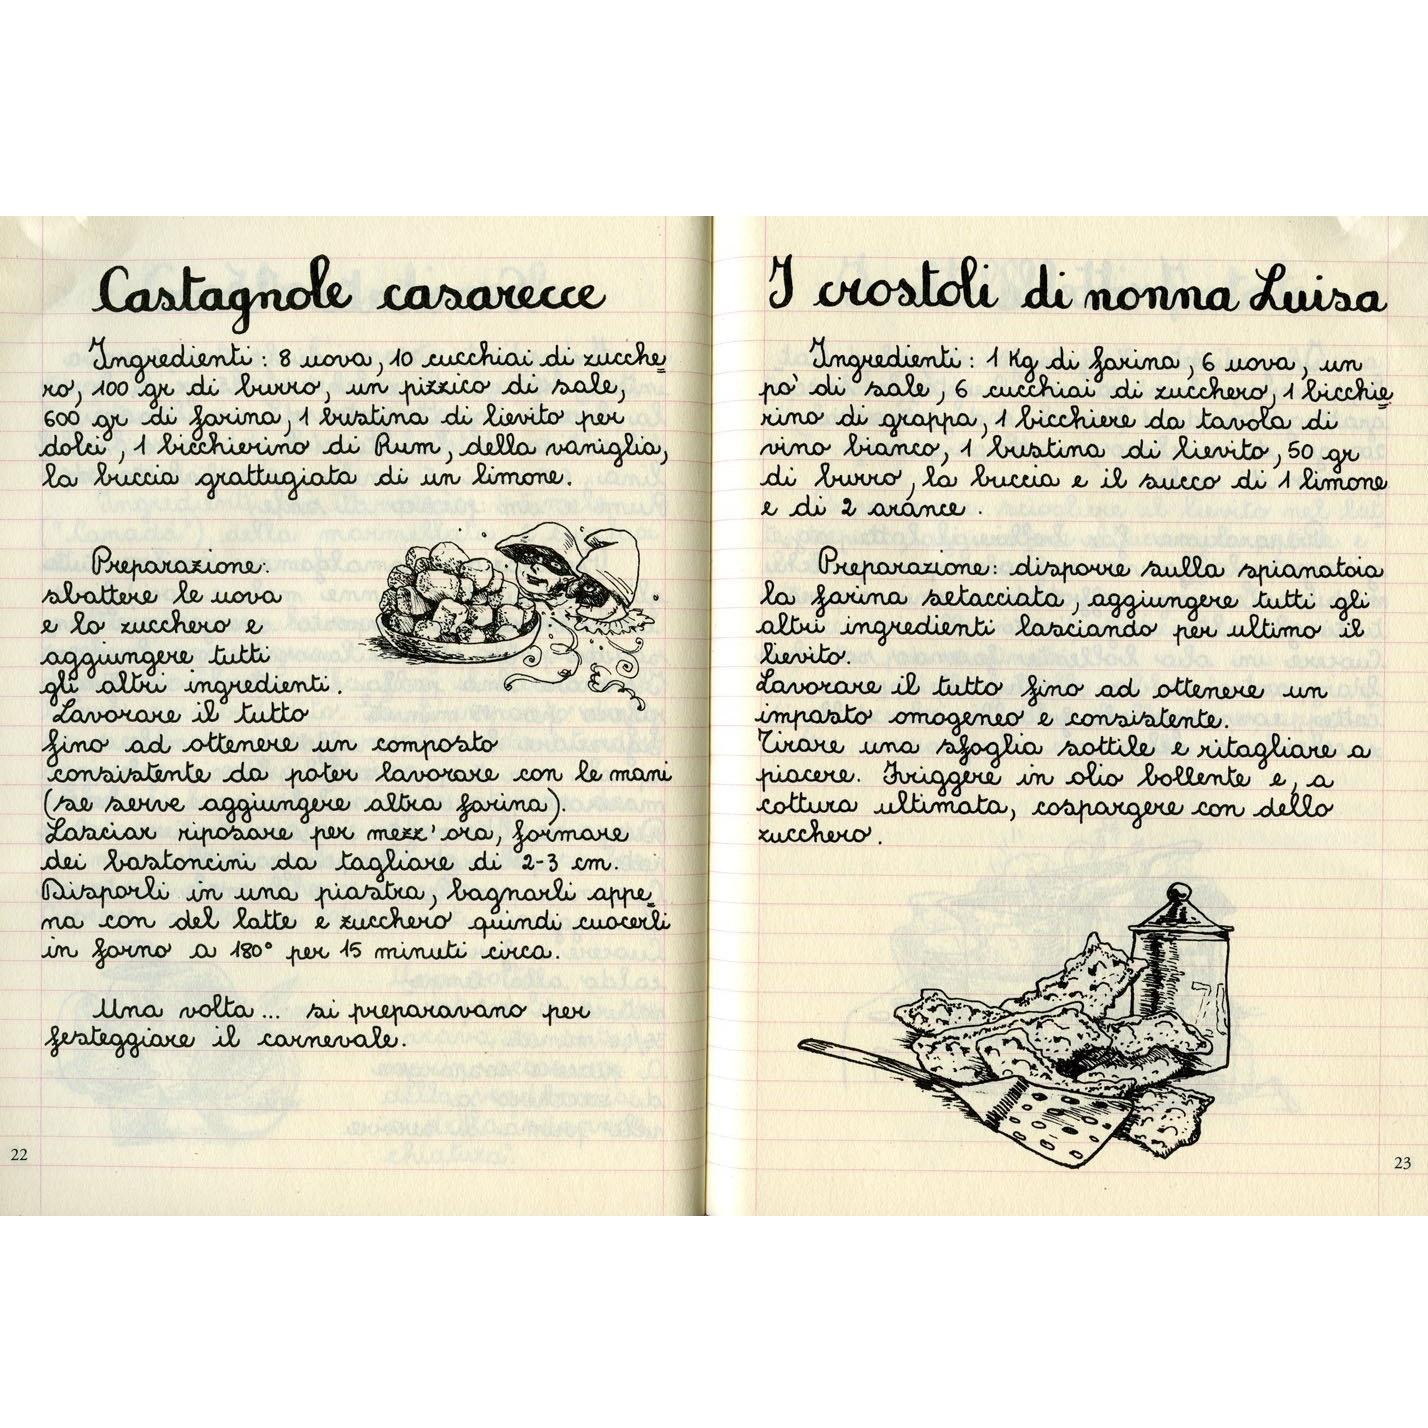 Castagnole casarecce
Ingredienti: 8 uova, 10 cucchiai di zucche=
ro, 100 gr di burro, un pizzico di sale,
600 gr di farina, 1 bustina di lievito per
dolci, 1 bicchierino di Rum, della vaniglia,
la buccia grattugiata di un limone.
Preparazione:
sbattere le uova
e lo zucchero e
aggiungere tutti
gli altri ingredienti.
Lavorare il tutto
fino ad ottenere un composto
consistente da poter lavorare con le mani
(se serve aggiungere altra farina).
Lasciar riposare per mezz'ora, formare
dei bastoncini da tagliare di 2-3 cm.
Disporli in una piastra, bagnarli appe=
na con del latte e zucchero quindi cuocerli
in forno a 180° per 15 minuti circa.
Una volta... si preparavano per
festeggiare il carnevale.
22
I crostoli di nonna Luisa
Ingredienti: 1 Kg di farina, 6 uova, un
po' di sale, 6 cucchiai di zucchero, 1 bicchie=
rino di grappa, 1 bicchiere da tavola di
vino bianco, 1 bustina di lievito, 50 gr
di burro, la buccia e il succo di 1 limone
e di 2 arance.
Preparazione: disporre sulla spianatoia
la farina setacciata, aggiungere tutti gli
altri ingredienti lasciando per ultimo il
lievito.
Lavorare il tutto fino ad ottenere un
impasto omogeneo e consistente.
Tirare una sfoglia sottile e ritagliare a
piacere. Friggere in olio bollente e, a
cottura ultimata, cospargere con dello
zucchero.
23